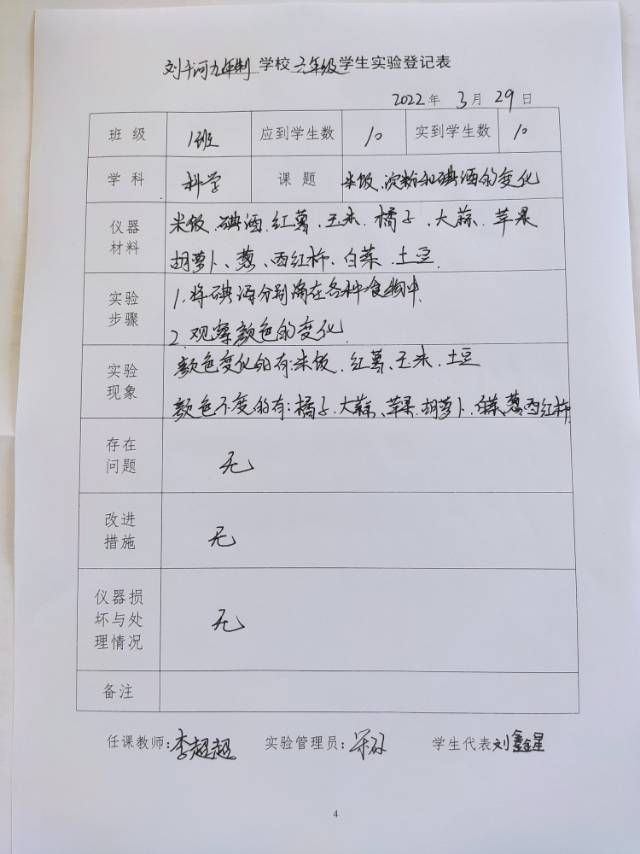 刘千河九年制学校六年级学生实验登记表
2022年3月29日
班级 1班 应到学生数 10 实到学生数 10
学科 科学 课题 米饭、淀粉和碘酒的变化
仪器材料 米饭、碘酒、红薯、玉米、橘子、大蒜、苹果
胡萝卜、葱、西红柿、白菜、土豆
实验步骤 1.将碘酒分别滴在各种食物中
2.观察颜色的变化
实验现象 颜色变化的有:米饭、红薯、玉米、土豆
颜色不变的有:橘子、大蒜、苹果、胡萝卜、白菜、葱、西红柿
存在问题 无
改进措施 无
仪器损坏与处理情况 无
备注
任课教师:李超超 实验管理员: 学生代表刘鑫星
4